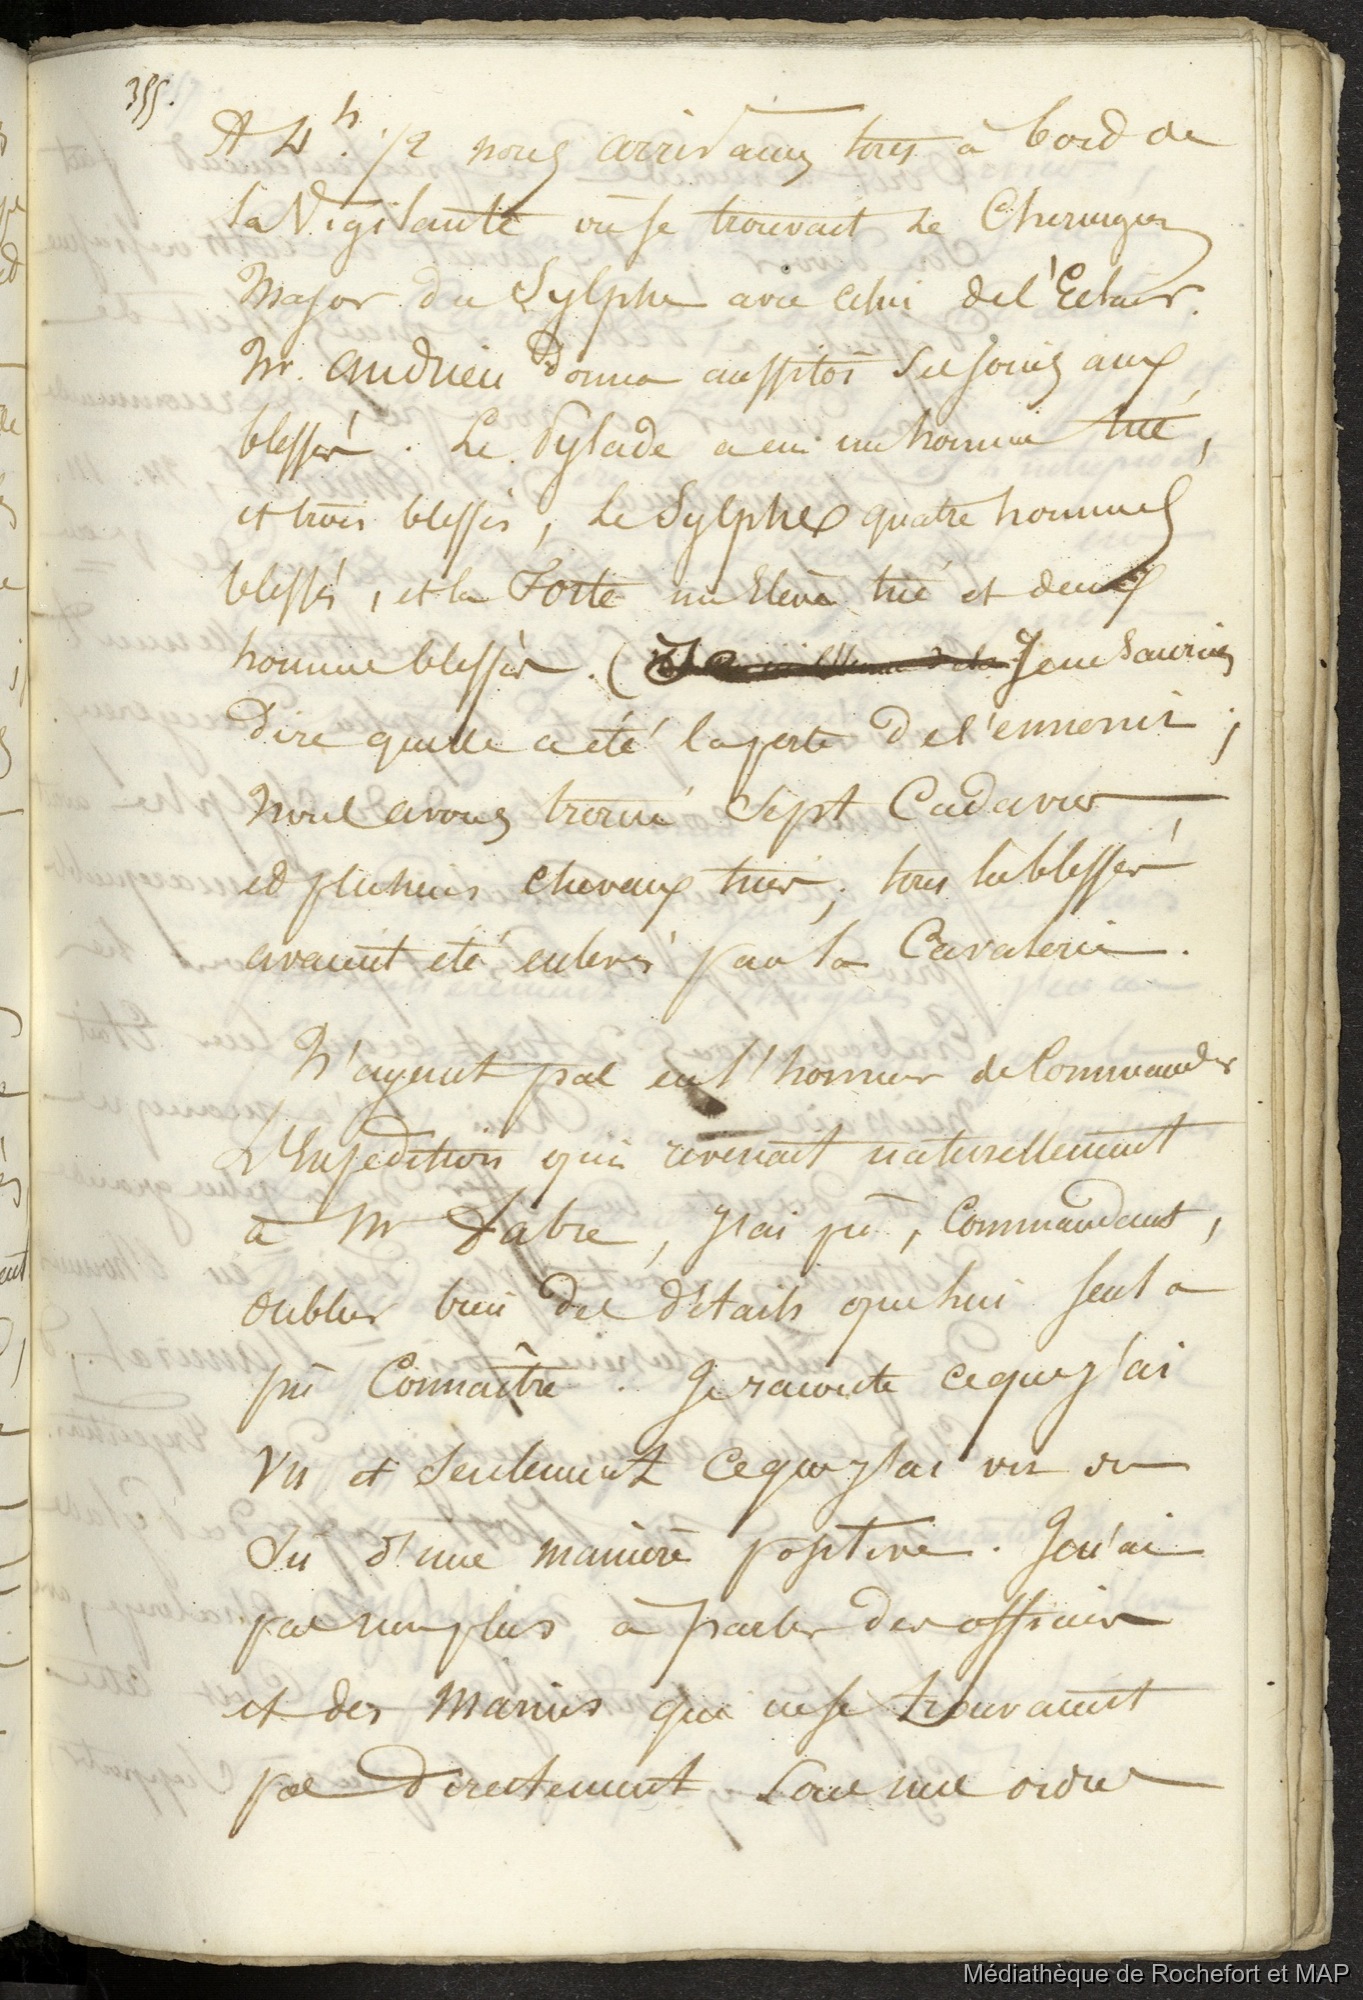 355.
A 4h. 1/2 nous arrivames tous à bord de
la Vigilante où se trouvait le Chirurgien
Major du Sylphe avec celui de l'Eclair.
Mr. Andrieu donna aussitôt ses soins aux
blessés. Le Pylade a eu un homme tué,
et trois blessés, le Sylphe quatre hommes
blessés, et la Forte un Elève tué et deux
hommes blessés. ( Je ne saurais
dire quelle a été la perte de l'ennemi;
nous avons trouvé sept Cadavres,
et plusieurs chevaux tués; tous les blessés
avaient été enlevés par la Cavalerie.
N'ayant pas eu l'honneur de Commander
L'Expedition qui revenait naturellement
à Mr Fabre, j'ai pû, Commandant,
oublier bien des détails que lui seul a
pû Connaître. Je raconte ce que j'ai
vu et seulement ce que j'ai vu ou
sû d'une manière positive. Je n'ai
pas non plus à parler des officiers
et des marins qui ne se trouvaient
pas directement sous mes ordres
Médiathèque de Rochefort et MAP